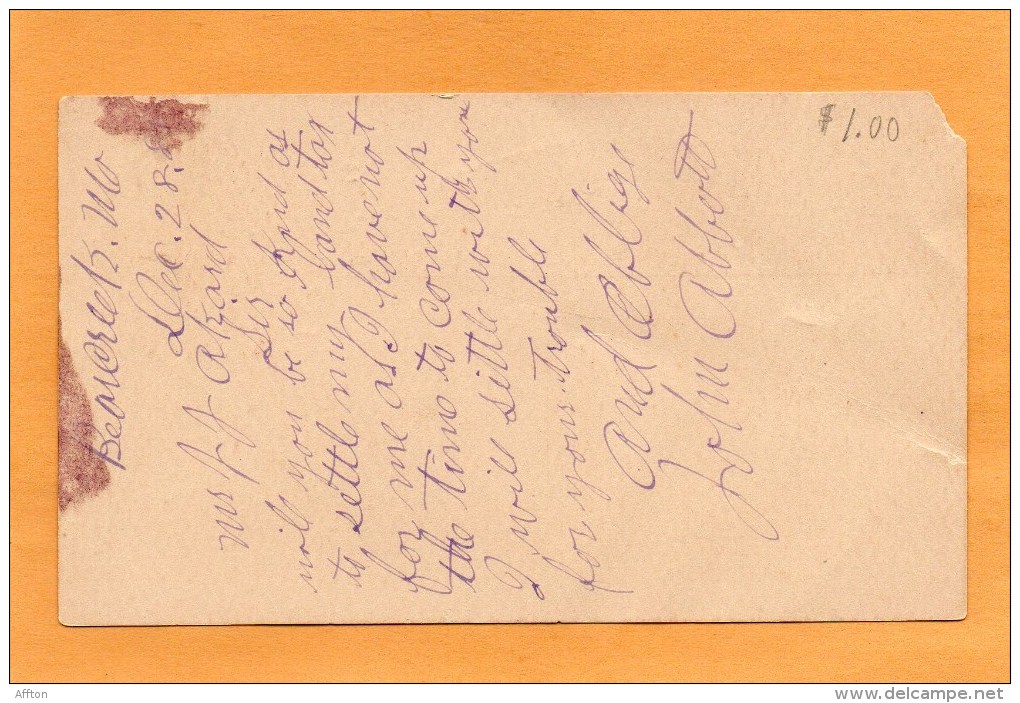 Beavercreek. Mo
Dec. 28.
Mr J J Akard
Sir
will you be so kind as
to settle my land tax
for me as I have not
the time to come up
I will settle with you
for your trouble
and ablige
John Abbott
$1.00
Affton
www.delcampe.net